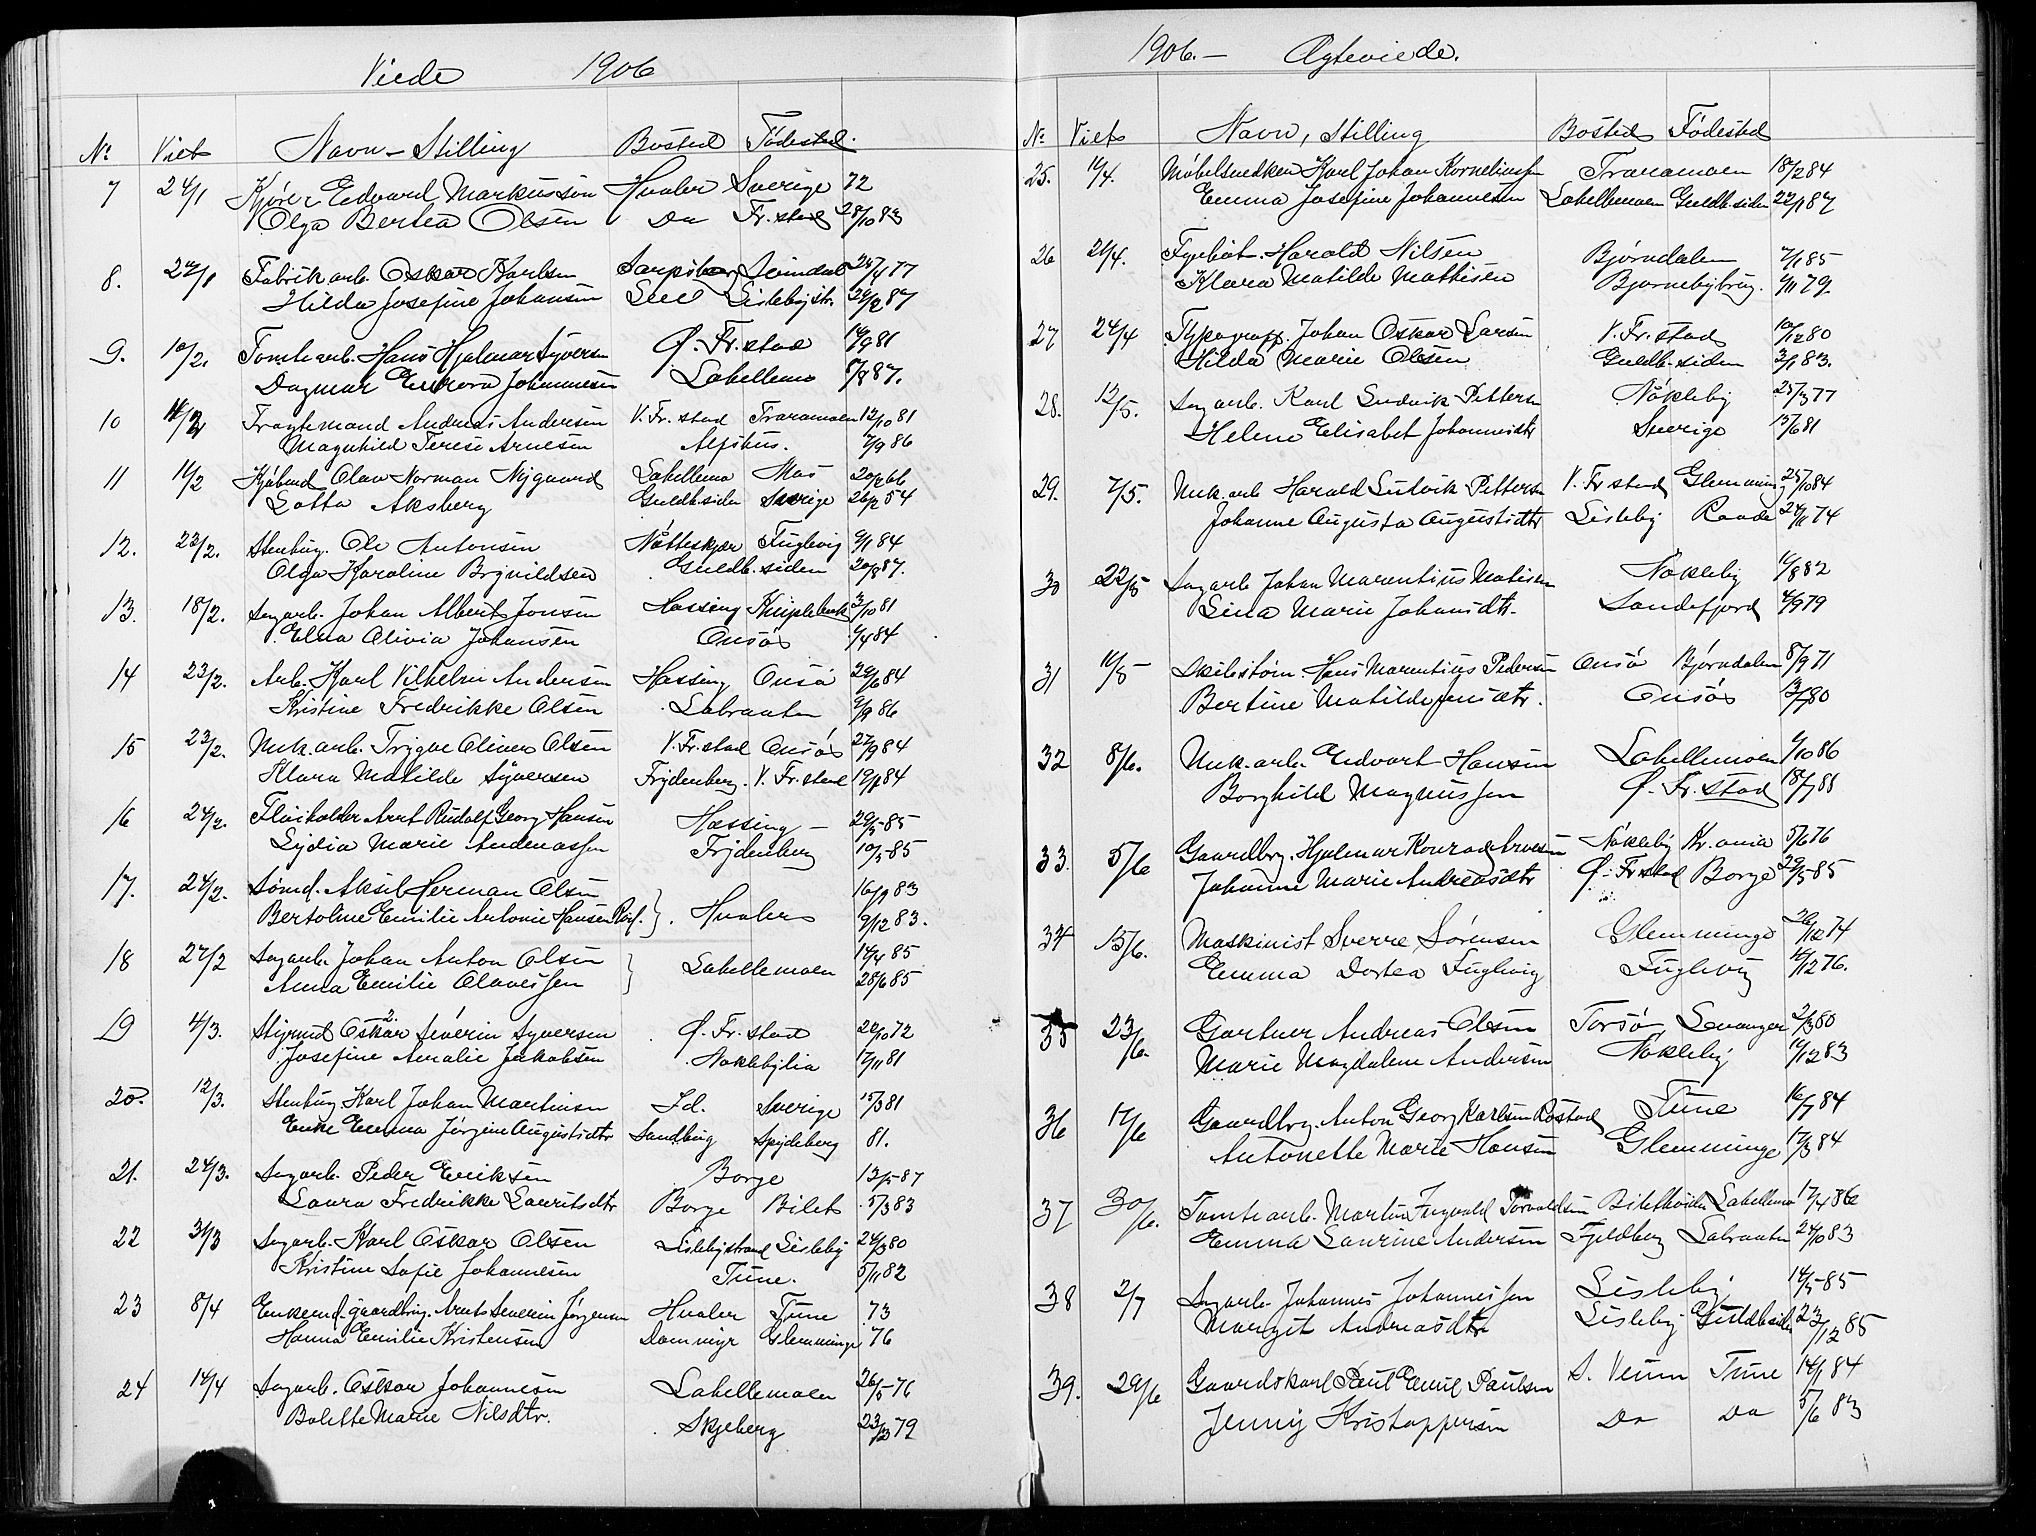 Viede 1906
No Viet Navn - Stilling Bosted Fødested.
7 24/1 Kjører Edvard Markussøn Hvaler Sverige 72
Olga Bertea Olsen Do Fr.stad 28/10 83
8. 27/1 Fabrikarb. Oskar Karlsen Sarpsborg 24/4 77
Hilda Josefine Johansen Lislebystr. 29/2 87
9. 10/2. Tomtearb. Hans Hjalmar Syvers Ø. Fr.stad 14/9 81
Dagmar Johannesen Labellemo 5/8 87.
10 Fragtemand Andreas Andersen V. Fr.stad Traramoen 12/10 81
Magnhild Terese Arnesen Alfshus. 7/9 86
11 11/2 Olav Norman Nygaard Labellemo Mos 20/6 66
Lotta Aksberg Guldb.siden Sverige 26/2 54
12. 23/2. Stenhug. Ole Antonsen Nøtteskjær Fuglevig 9/1 84
Olga Karoline Brynildsen Guldb.siden 20/8 87.
13. 18/2. Sagarb. Johan Albert Jonsen Hassing 3/10 81
Elna Olivia Johansen Onsø 4/4 84
14 23/2. Arb. Karl Vilhelm Andersen Hassing Onsø 29/6 84
Kristine Fredrikke Olsen Labraaten 9/9 86
15 23/2. Mek.arb. Trygve Oliver Olsen V. Fr.stad Onsø 27/9 84
Klara Matilde Syversen Frydenberg. V. Fr.stad 19/1 84
16 24/2. Arnt Rudolf Georg Hansen Hassing - 29/5 85
Lydia Marie Andenassen Frydenberg 10/5 85
17. 24/2. Sømd. Aksel Herman Olsen 16/9 83
Bertoline Emilie Antonie Hansen }. Hvaler 9/12 83.
18 27/2 Sagarb. Johan Anton Olsen 14/4 85
Anna Emilie Olavessen } Labellemoen 28/6 85
19 4/3. Styrmd Oskar 2. Severin Syversen Ø. Fr.stad 22/10 72
Josefine Amalie Jakobsen Nøklebylia 17/11 81
20. 12/3. Stenhug Karl Johan Martinsen Id. Sverige 15/3 81
Enke Emma Jørgine Augustidtr Sandbug Spydeberg 81.
21. 24/3. Sagarb. Peder Eriksen Borge 13/5 87
Laura Fredrikke Lauritsdtr Borge Bilet 5/3 83
22 31/3 Sagarb. Karl Oskar Olsen Lislebystrand Lisleby 24/3 80
Kristine Sofie Johannesen Tune. 5/11 82
23 8/4 Enkemd. gaardbrug. Arnts Severin Jørgensen Hvaler Tune 73
Hanna Emilie Kristensen Dammyr Glemminge 76
24 14/4 Sagarb. Oskar Johannesen Labellemoen 26/5 76
Bolette Marie Nilsdtr. Skjeberg 23/3 79
1906. - Ægteviede.
No Viets Navn, Stilling Bosted Fødested
25. 16/4. Møbelsnedker Karl Johan Korneliussen Traramoen 18/2 84
Emma Josefine Johannesen Labellemoen Guldb.siden 22/1 87
26 21/4. Fyrbøt. Harald Nilsen Bjørndalen 7/1 85
Klara Matilde Mathisen Bjørnebybrug. 6/11 79
27 24/4 Typograff. Johan Oskar Larsen V. Fr.stad 10/12 80
Hilda Marie Olsen Guldb.siden 3/1 83.
28. 12/5. Sagarb. Karl Ludvik Petters Nøkleby 25/3 77
Helene Elisabet Johannesdtr Sverige 13/6 81
29. 7/5. Mek.arb Harald Ludvik Petters V. Fr.stad Glemming 25/10 84
Johanne Augusta Augustidtr Lisleby Raade 24/11 74
30 22/5 Sagarb. Johan Marentius Matisen Nøkleby 6/8 82
Lina Marie Johansdtr. Sandefjord 4/9 79
31 11/5 Hans Marentius Pedersen Onsø Bjørndalen 8/9 71
Bertine Matilde Jensdtr. Onsø 13/7 80
32 8/6. Mek.arb. Edvart Hansen Labellemoen 9/10 86
Borghild Magnussen Ø. Fr.stad 18/7 88
33. 5/6 Gaardbrg. Hjalmar Konrad Arvesen Nøkleby Kr.ania 5/6 76
Johanne Marie Andreasdtr Ø. Fr.stad Borge 29/5 85
34 15/6. Maskinist Sverre Sørensen Glemminge 26/12 74
Emma Dortea Fuglevig Fuglevig 12/12 76.
35 23/6. Gartner Andreas Olsen Torsø Levanger 2/3 80
Marie Magdalene Andersen Nøkleby 19/12 83
36 17/6 Gaardbrg. Anton Georg Karlsen Røstad Tune 16/7 84
Antonette Marie Hansen Glemminge 17/3 84
37 30/6. Tomtearb. Martin Ingvald Torvaldsen Biletholen Labellemo 17/4 86
Emma Laurine Andersen Fjeldberg Labraaten 24/10 83
38 2/7 Sagarb. Johannes Johannessen Lisleby 14/5 85
Margit Andreasdtr Lisleby Guldbsiden 23/12 85
39. 29/6 Gaardskarl Paul Emil Paulsen S. Veum Tune 14/1 84
Jenny Kristoppersen Do Do 5/6 83